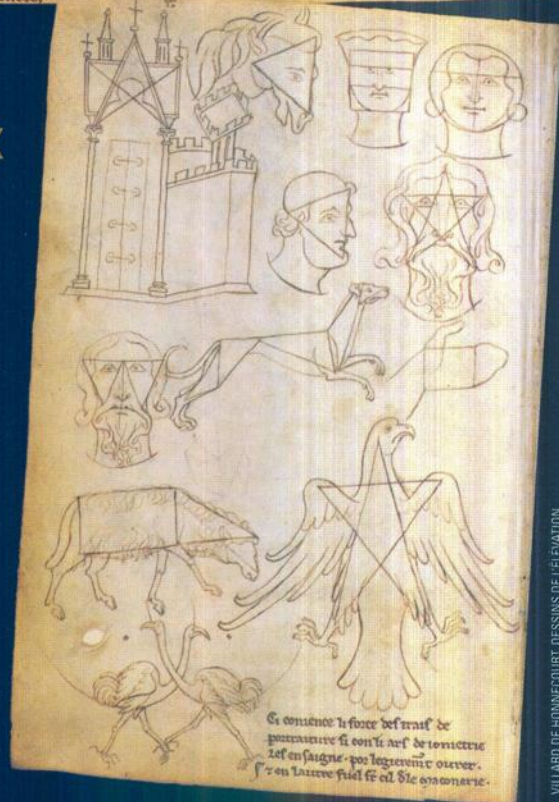 Ci comence li force des trais de
portraiture si con li ars de iometrie
les ensaigne · por legieremt ovrer·
⁊ en lautre fuel st cil de le maconerie·
VILLARD DE HONNECOURT, DESSINS DE L'ÉLÉVATION